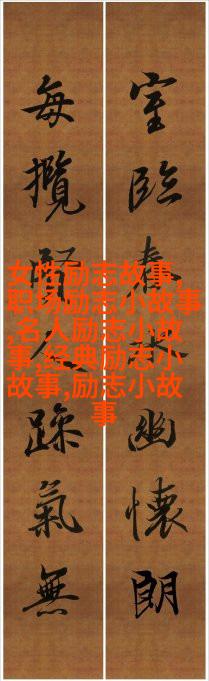 室臨春林幽懷朗
每攬人躁氣無
女性励志故事,
职场励志小故事
,名人励志小故
事,经典励志小
故事,励志小故
事